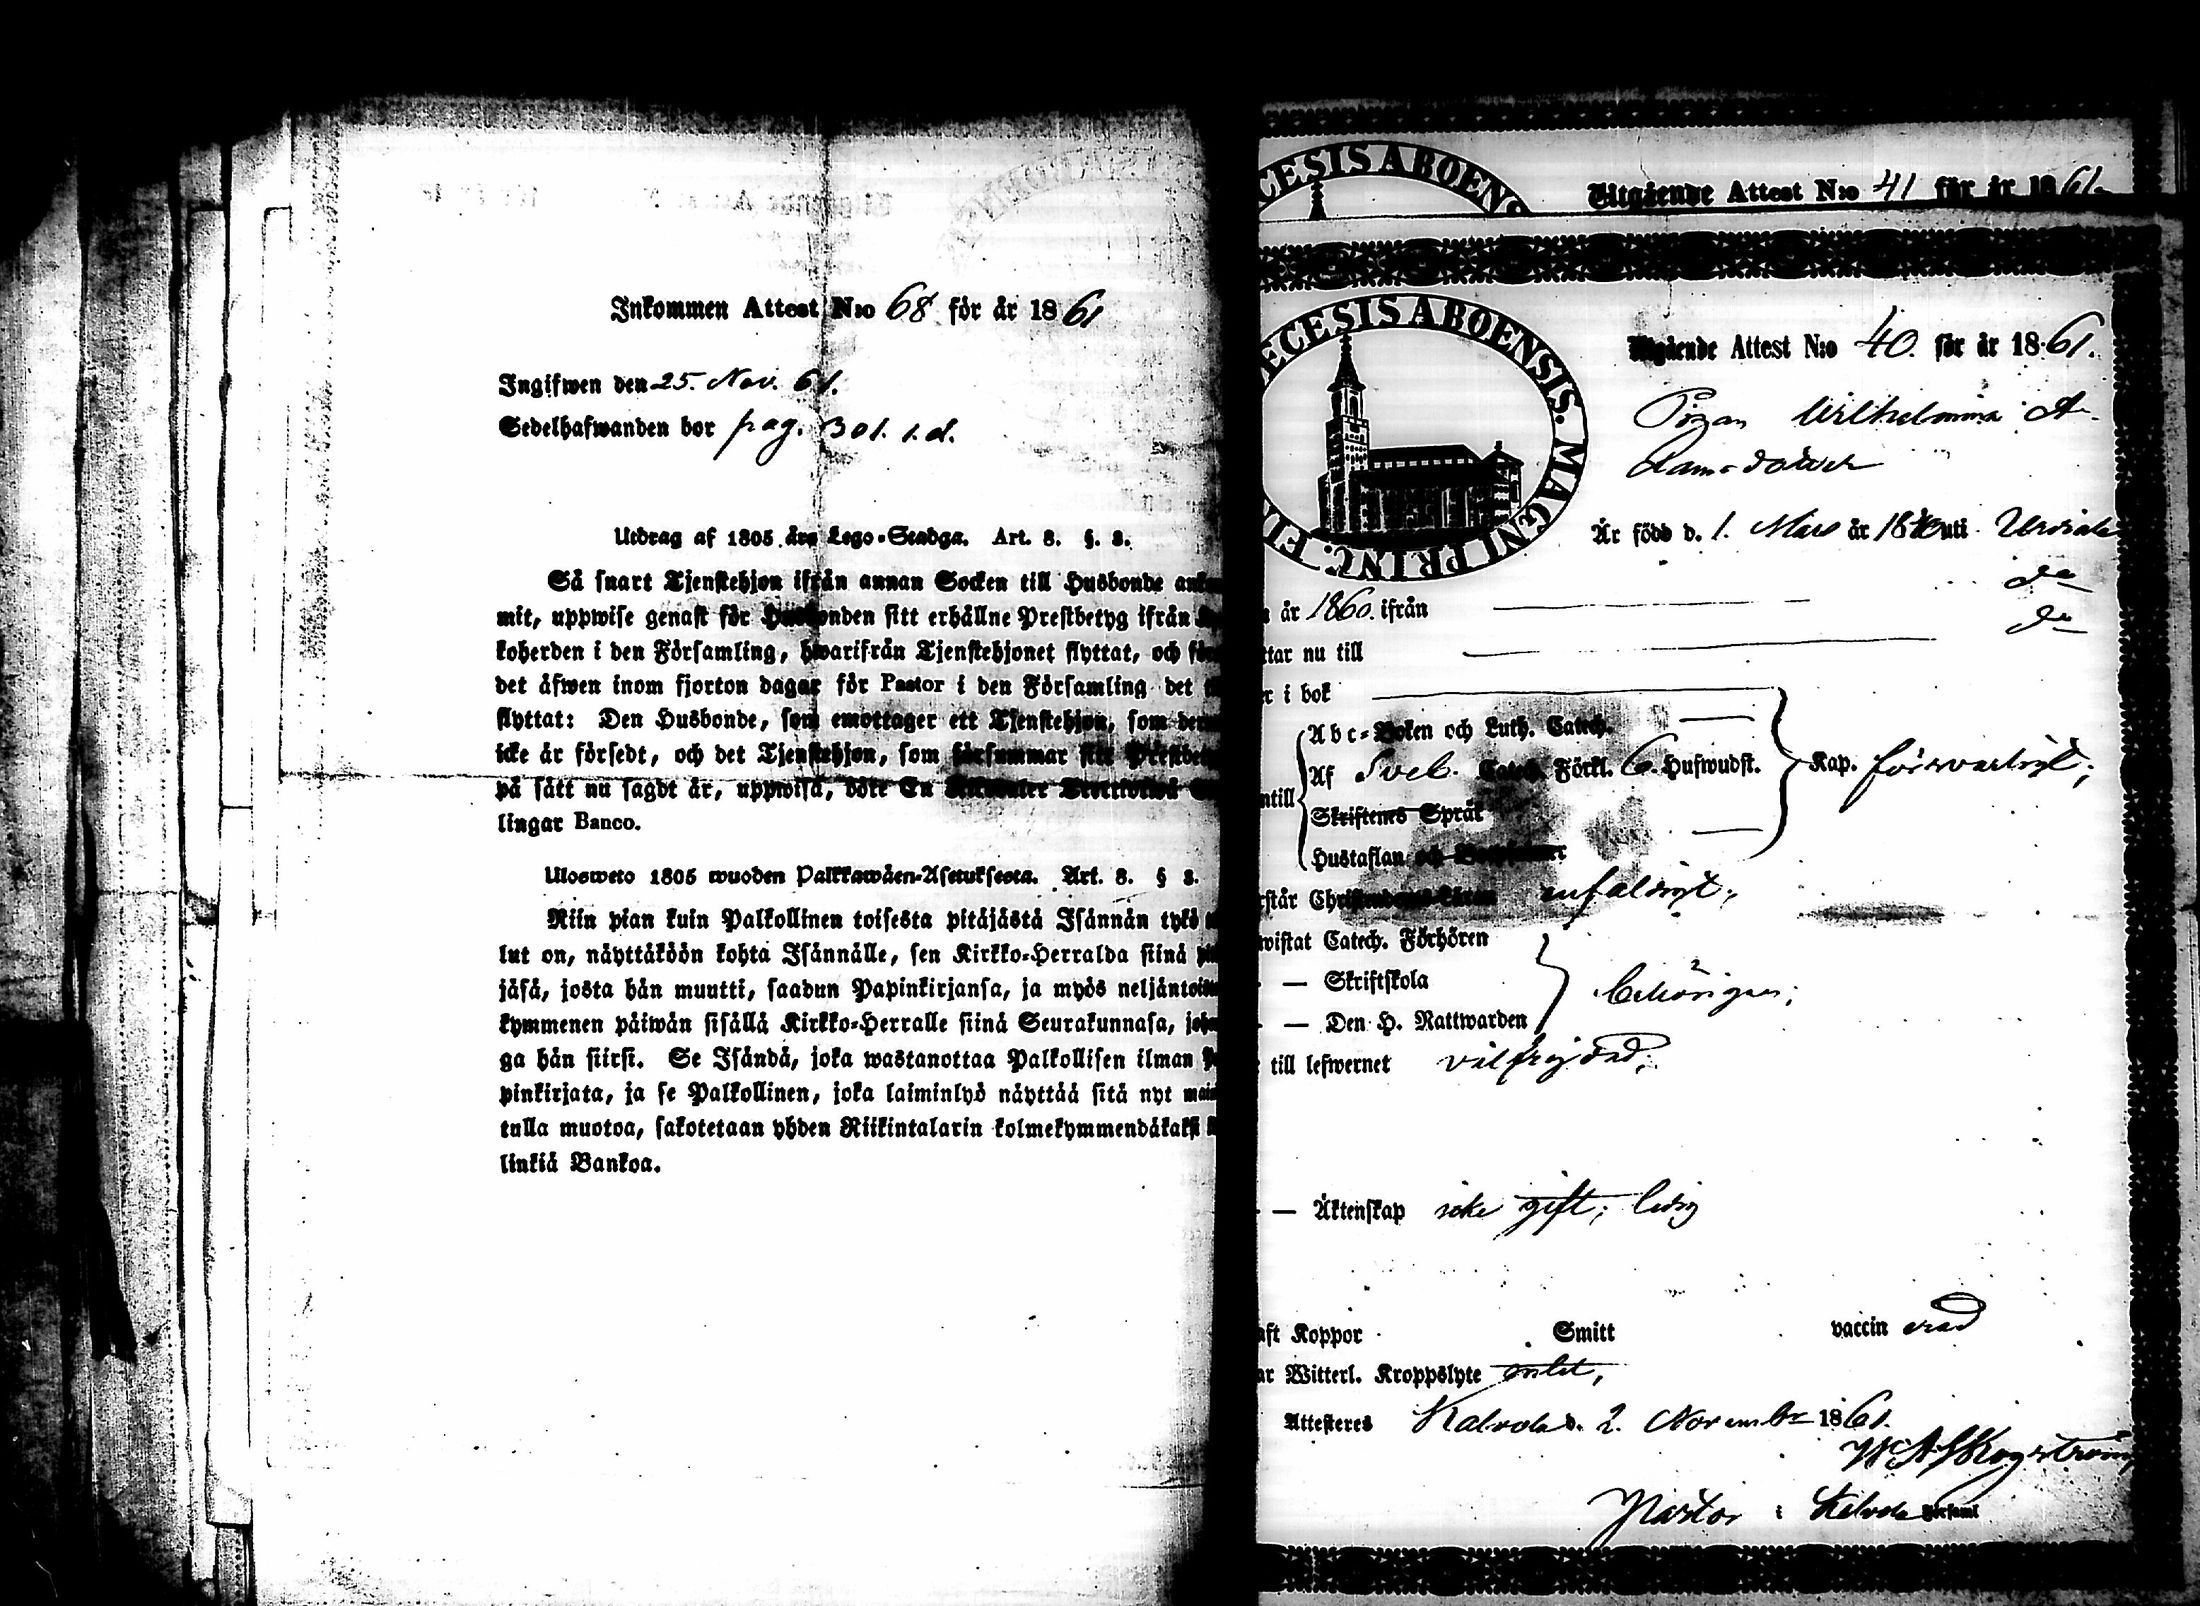 Inkommen Attest N:o 68 för år 1861
Ingifwen den 25. Nov. 61.
Sedelhafwanden bor pag. 301. 1. d.
Utdrag af 1805 års Lego-Stadga. Art. 8. §. 8.
Så snart Tjenstehjon ifrån annan Socken till Husbonde
mit, uppwise genast för Husbonden sitt erhållne Prestbetyg ifrån
koherden i den Församling, hwarifrån Tjenstehjonet flyttat, och
det äfwen inom fjorton dagar för Pastor i den Församling det
flyttat: Den Husbonde, som emottager ett Tjenstehjon, som
icke är försedt, och det Tjenstehjon, som försummar sitt
på sätt nu sagdt är, uppwisa, böte En
lingar Banco.
Ulosweto 1805 wuoden Palkkawäen-Asetuksesta. Art. 8. § 8.
Niin pian kuin Palkollinen toisesta pitäjästä Isännän tykö
lut on, näyttäköön kohta Isännälle, sen Kirkko-Herralda siinä
jäsä, josta hän muutti, saadun Papinkirjansa, ja myös
kymmenen päiwän sisällä Kirkko-Herralle siinä Seurakunnasa,
ga hän siirsi. Se Isändä, joka wastanottaa Palkollisen ilman
pinkirjata, ja se Palkollinen, joka laiminlyö näyttää sitä nyt
tulla muotoa, sakotetaan yhden Riikintalarin kolmekymmendäkaksi
linkiä Bankoa.
CESIS ABOEN
Utgående Attest N:o 41 för år 1861
ECESIS ABOENSIS. MAGNI PRINC. FIN
Utgående Attest N:o 40. för år 1861.
Pigan Wilhelmina A-
dams dotter
Är född d. 1. Mars år 18 uti Urdiala
år 1860. ifrån — do
tar nu till — do
i bok
Abc-Boken och Luth. Catech. —
Af Sveb. Catech. Förkl. 6. Hufwudst. Kap. försvarligt;
ntill
Skriftenes Språk —
Hustaflan och
står Christendoms-Läran enfaldigt;
wistat Catech. Förhören
— Skriftskola behörigen;
— Den H. Nattwarden
till lefwernet välfrejdad;
— Äktenskap icke gift; ledig
aft Koppor Smitt vaccin erad
ar Witterl. Kroppslyte intet,
Attesteres Kalvola d. 2. November 1861.
W A Skogström
Pastor i Kalvola Församl